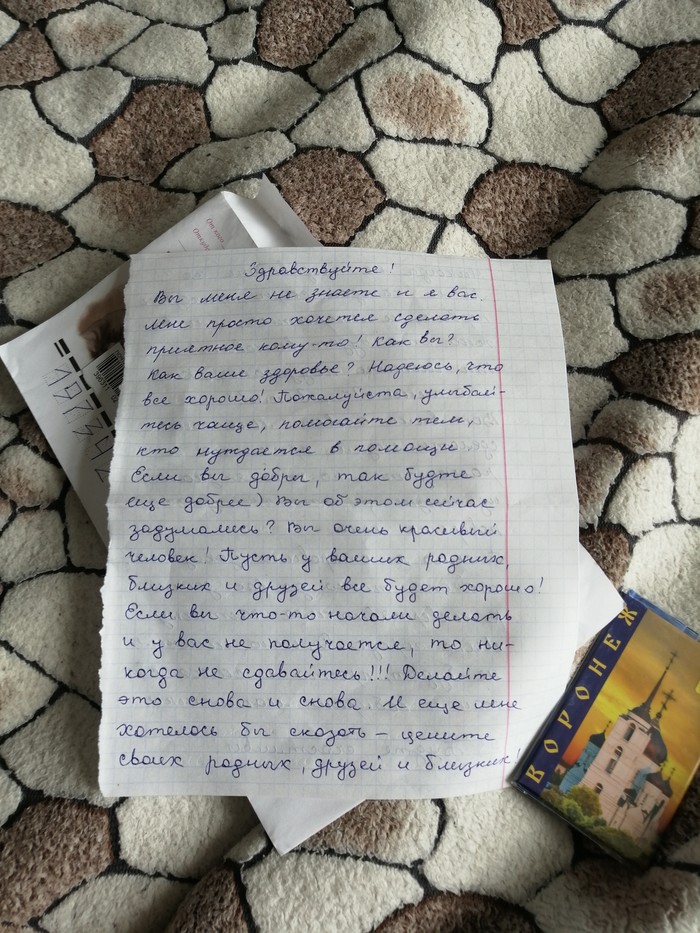 Здравствуйте!
Вы меня не знаете и я вас.
Мне просто хочется сделать
приятное кому-то! Как вы?
Как ваше здоровье? Надеюсь, что
все хорошо! Пожалуйста, улыбай-
тесь чаще, помогайте тем,
кто нуждается в помощи
Если вы добры, так будте
еще добрее) Вы об этом сейчас
задумались? Вы очень красивый
человек! Пусть у ваших родных,
близких и друзей все будет хорошо!
Если вы что-то начали делать
и у вас не получается, то ни-
когда не сдавайтесь!!! Делайте
это снова и снова. И еще мне
хотелось бы сказать – цените
своих родных, друзей и близких!
ВОРОНЕЖ